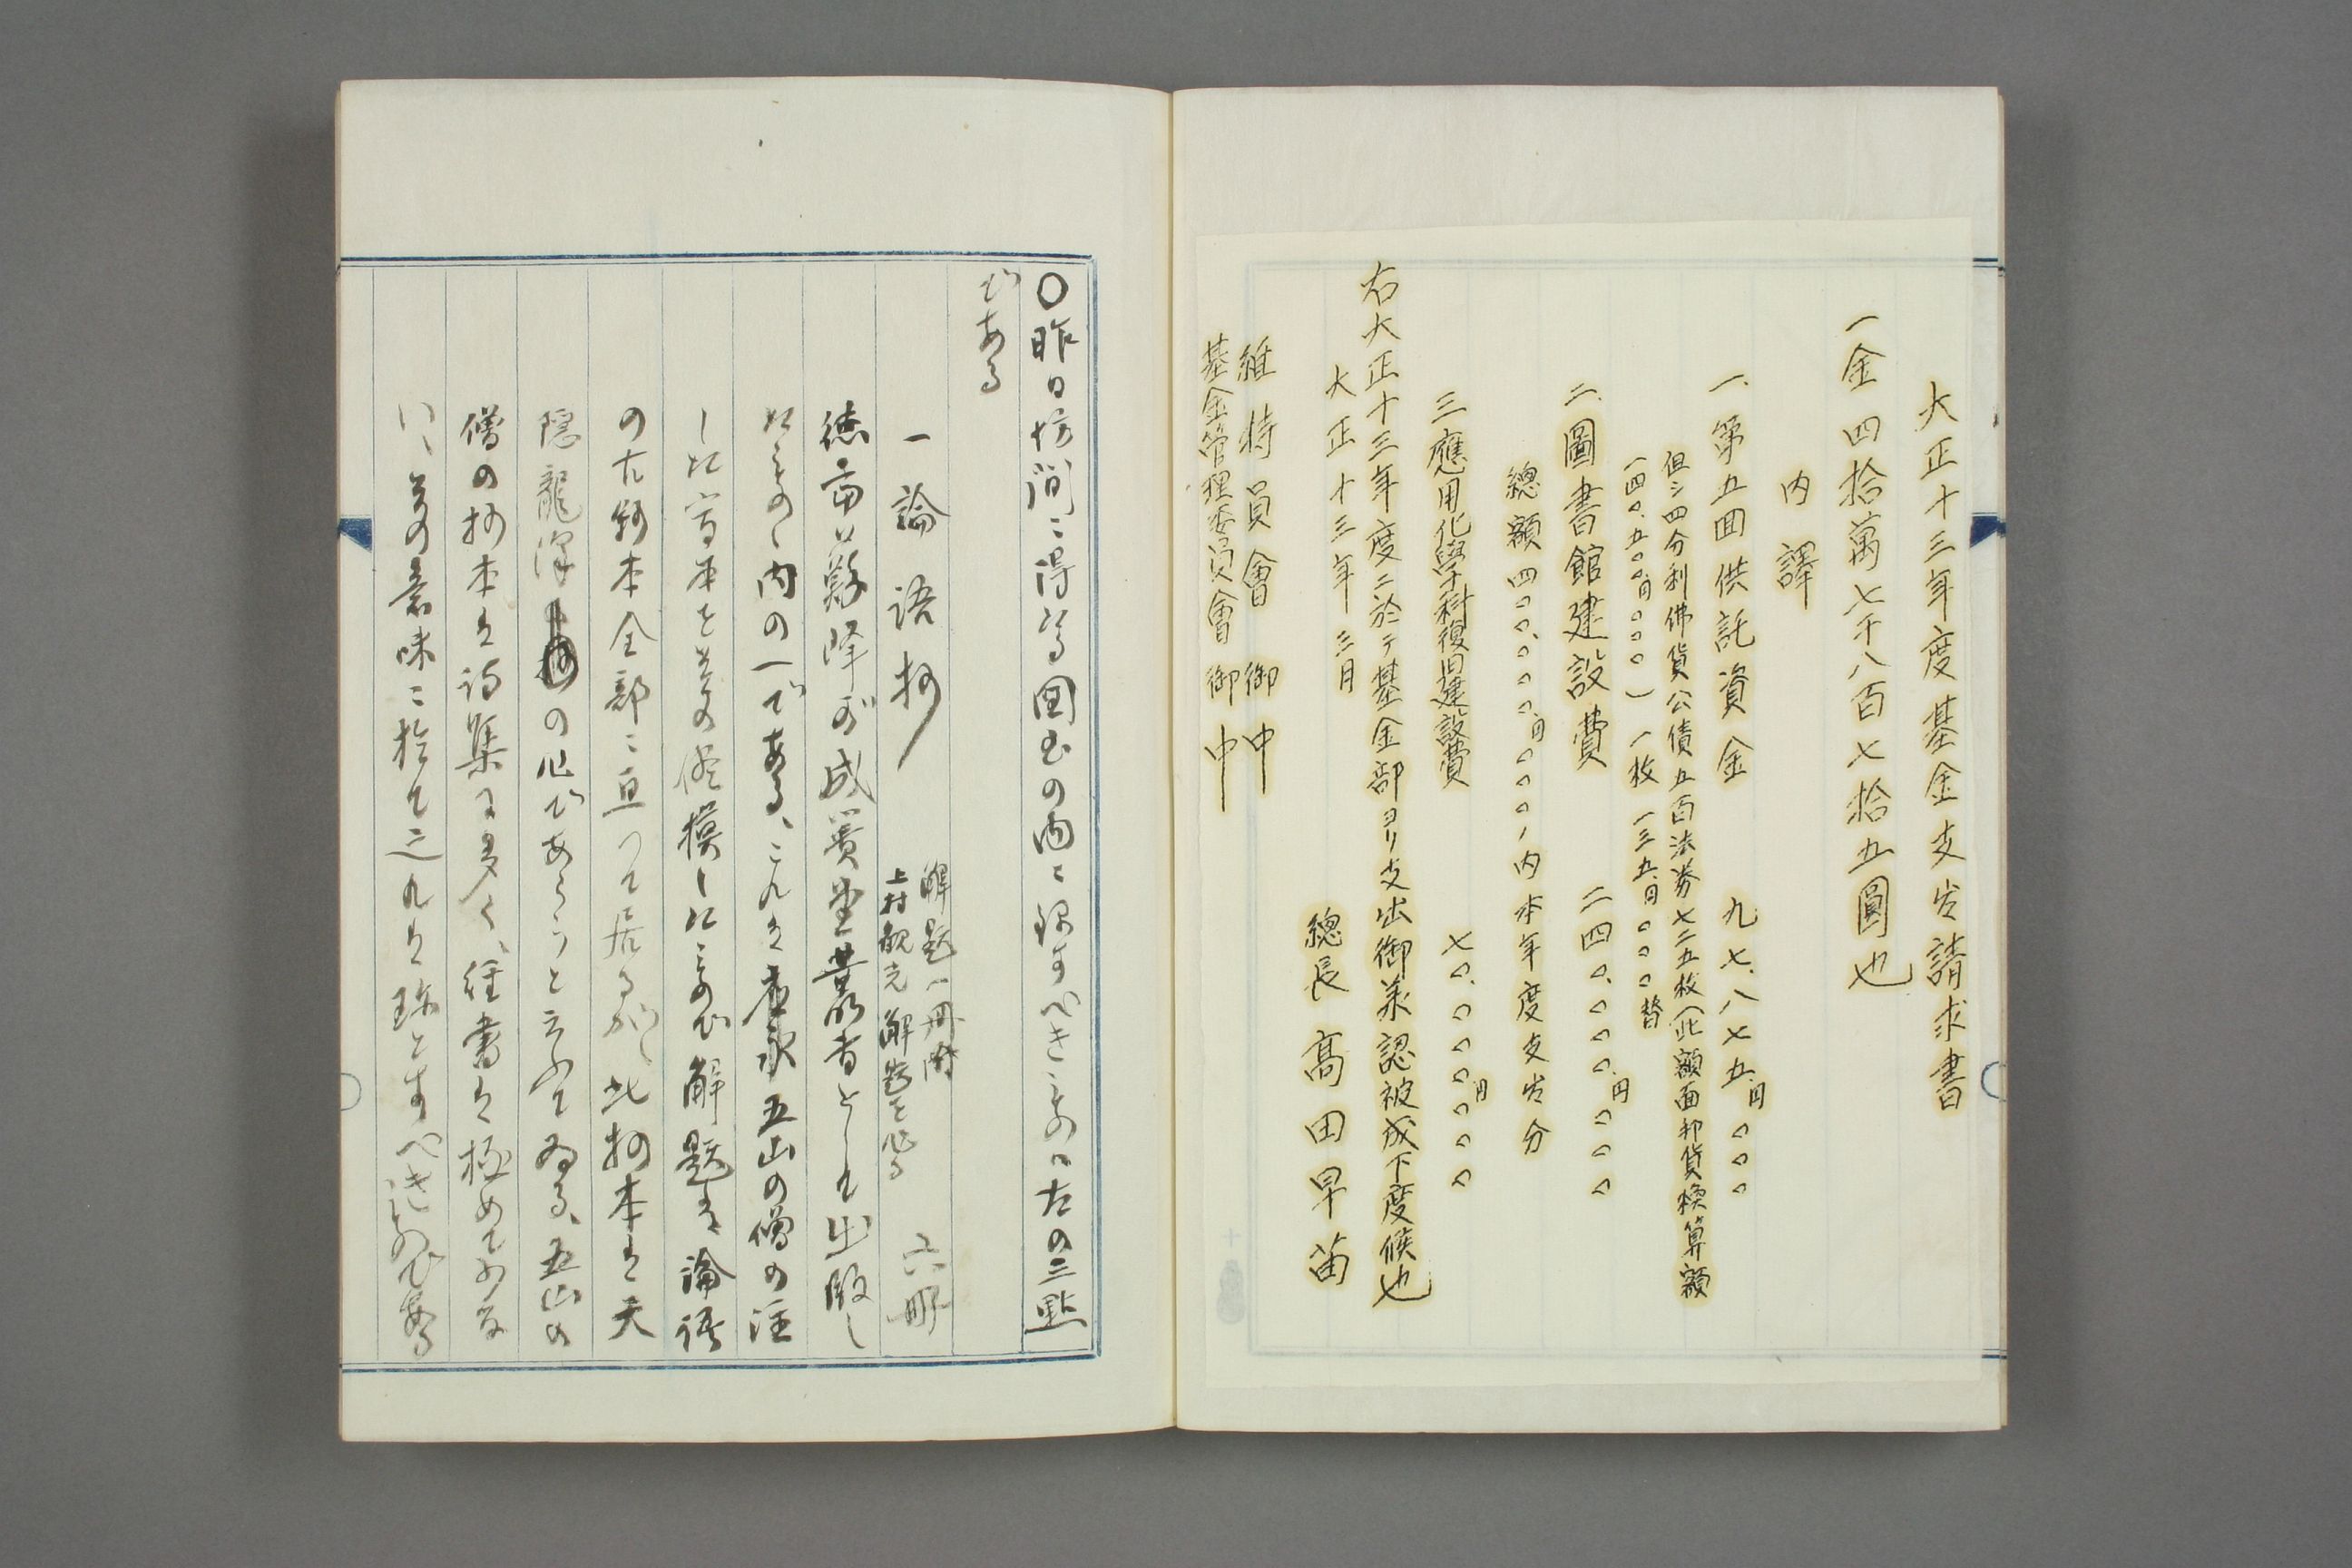 大正十三年度基金支出請求書
一金四拾萬七千八百七拾五圓也
内譯
一、第五回供託資金 九七、八七五、円〇〇〇
但シ四分利佛貨公債五百法券七二五枚(此額面邦貨換算額
一四〇、五〇〇、円〇〇〇)一枚一三五、円〇〇〇替
二、圖書館建設費 二四〇、〇〇〇、円〇〇〇
總額四〇〇、〇〇〇、円〇〇〇ノ内本年度支出分
三應用化學科復旧建設費 七〇、〇〇〇、円〇〇〇
右大正十三年度ニ於テ基金部ヨリ支出御承認被成下度候也
大正十三年三月
總長高田早苗
維持員會御中
基金管理委員會御中
〇昨日坊間ニ得たる図書の内ニ録すべきものハ左の三點
である
一論語抄 解題一冊附 上村観光解題を作る 六冊
徳富蘇峰が成簣堂叢書として出版し
たものゝ内の一である、これは應永五山の僧の注
した写本を其の儘模したもので解題は論語
の古鈔本全部ニ亘つて居るが、此抄本は天
隠龍澤の作であらうと云ふてゐる、五山の
僧の抄本は詩集に多く、経書は極めて少な
い、其の意味ニ於て之れは珍とすべきものである